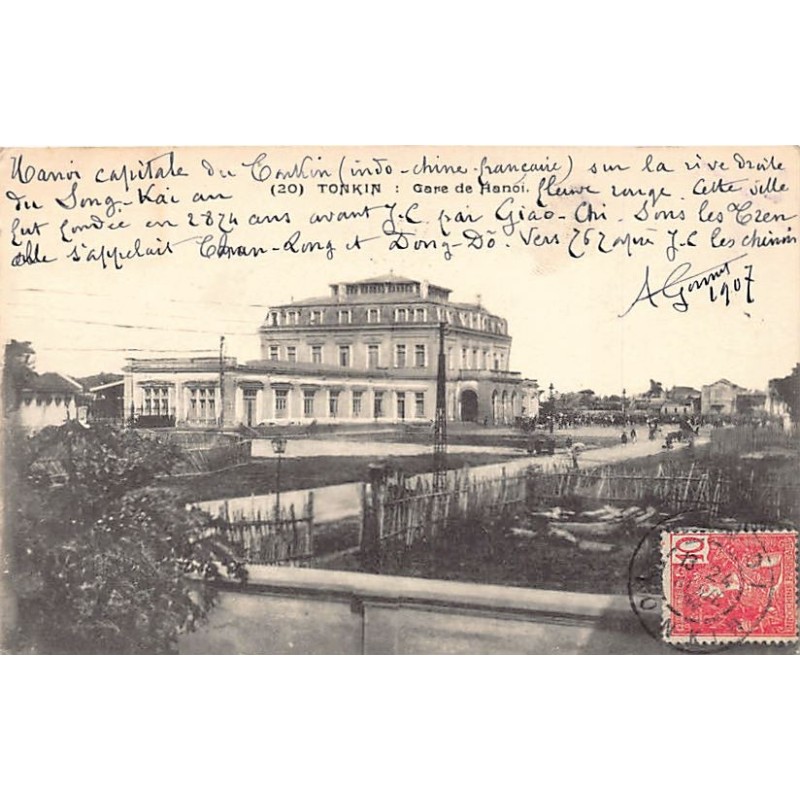 Hanoi capitale du Tonkin (indo-chine française) sur la rive droite
du Song-Kai au
(20) TONKIN : Gare de Hanoi.
fleuve rouge. Cette ville
fut fondée en 2874 ans avant J.C. par Giao-Chi. Sous les Tren
elle s'appelait Tharan-Long et Dong-Dô. Vers 767 après J.C les chinois
A Gonnet
1907
10
24